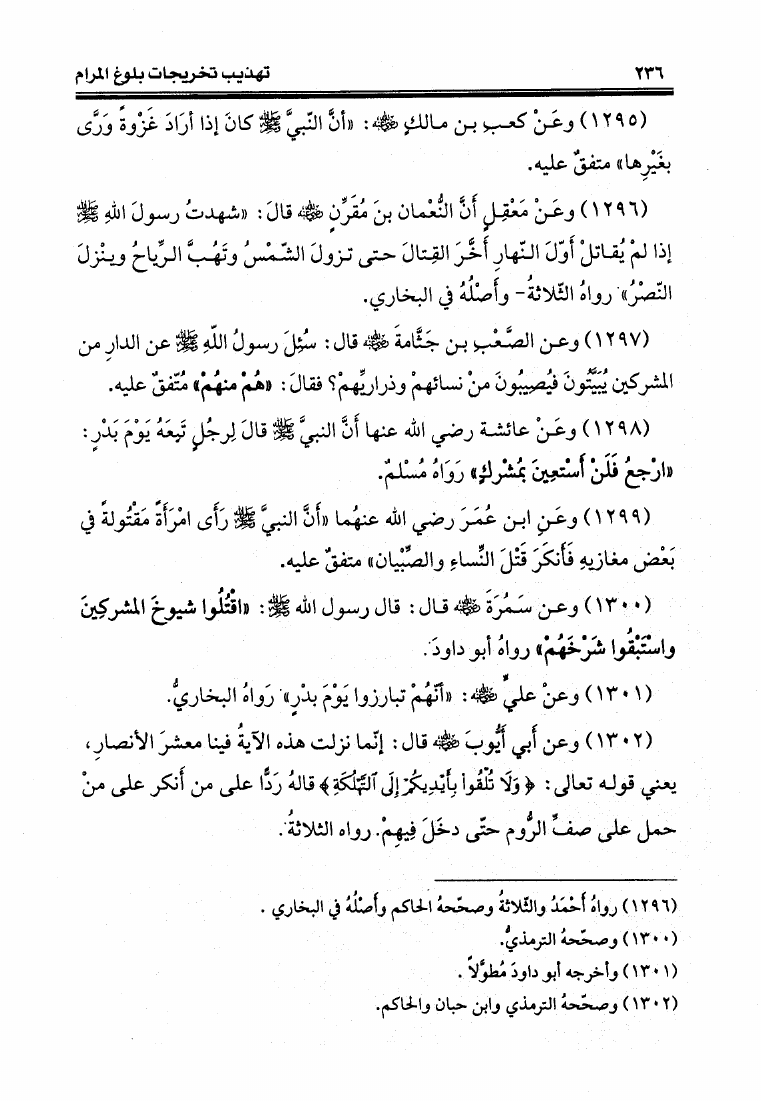 ٢٣٦ تهذيب تخريجات بلوغ المرام
(١٢٩٥) وعَنْ كعبِ بنِ مالكٍ ﵁: «أنَّ النّبيَّ ﷺ كانَ إذا أرَادَ غَزْوةً وَرَّى
بغَيْرِها» متفقٌ عليه.
(١٢٩٦) وعَنْ مَعْقِلٍ أنَّ النُّعْمان بنَ مُقَرِّنٍ ﵁ قالَ: «شهدتُ رسولَ اللهِ ﷺ
إذا لمْ يُقاتلْ أوّلَ النّهارِ أخَّرَ القِتالَ حتى تزولَ الشّمْسُ وتَهُبَّ الرِّياحُ وينْزِلَ
النّصْرُ» رواهُ الثّلاثةُ- وأَصْلُهُ في البخاري.
(١٢٩٧) وعنِ الصَّعْبِ بنِ جَثّامةَ ﵁ قال: سُئِلَ رسولُ اللّهِ ﷺ عن الدارِ من
المشركين يُبَيَّتُونَ فيُصِيبُونَ منْ نسائهمْ وذراريِّهمْ؟ فقالَ: «هُمْ منهُمْ» مُتّفقٌ عليه.
(١٢٩٨) وعَنْ عائشة رضي الله عنها أنَّ النبيَّ ﷺ قالَ لِرجُلٍ تَبِعَهُ يَوْمَ بَدْرٍ:
«ارْجعُ فَلَنْ أَسْتعِينَ بمُشْركٍ» رَوَاهُ مُسْلمٌ.
(١٢٩٩) وعَنِ ابنِ عُمَرَ رضي الله عنهُما «أنَّ النبيَّ ﷺ رَأى امْرَأةً مَقْتُولةً في
بَعْض مغازيهِ فَأَنكَرَ قَتْلَ النِّساءِ والصِّبْيان» متفقٌ عليه.
(١٣٠٠) وعن سَمُرَةَ ﵁ قال: قال رسول الله ﷺ: «اقْتُلُوا شيوخَ المشركِينَ
واسْتَبْقُوا شَرْخَهُمْ» رواهُ أبو داودَ.
(١٣٠١) وعنْ عليٍّ ﵁: «أنّهُمْ تبارزوا يَوْمَ بدْرٍ» رَواهُ البخاريُّ.
(١٣٠٢) وعن أبي أَيُّوبَ ﵁ قال: إنّما نزلت هذه الآيةُ فينا معشرَ الأنصارِ،
يعني قوله تعالى: ﴿وَلَا تُلْقُوا بِأَيْدِيكُمْ إِلَى التَّهْلُكَةِ﴾ قالهُ ردًّا على من أنكر على منْ
حمل على صفِّ الرُّوم حتّى دخَلَ فِيهِمْ. رواه الثلاثةُ.
(١٢٩٦) رواهُ أحْمَدُ والثّلاثةُ وصحّحهُ الحاكم وأصْلُهُ في البخاري .
(١٣٠٠) وصحّحهُ الترمذيُّ.
(١٣٠١) وأخرجه أبو داودَ مُطوَّلاً .
(١٣٠٢) وصحّحهُ الترمذي وابن حبان والحاكم.